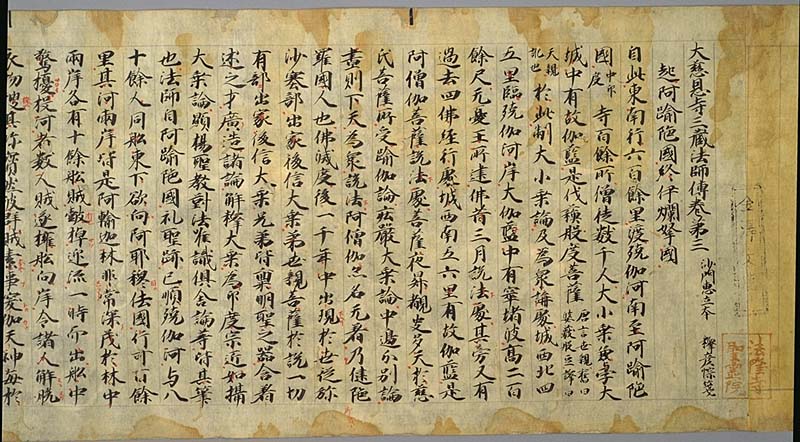 大慈恩寺三藏法師傳卷第三
沙門惠立本
釋彦悰箋
起阿踰陀國終伊爛拏國
自此東南行六百餘里渡殑伽河南至阿踰陀
國中印度寺百餘所僧徒數千人大小乘兼學大
城中有故伽藍是伐蘇畔度菩薩唐言世親舊曰婆藪盤豆譯曰
天親訛也於此制大小乘論及為衆講處城西北四
五里臨殑伽河岸大伽藍中有窣堵波高二百
餘尺无憂王所建佛昔三月說法處其旁又有
過去四佛經行處城西南五六里有故伽藍是
阿僧伽菩薩說法處菩薩夜昇覩史多天於慈
氏菩薩所受瑜伽論莊嚴大乘論中邊分別論
晝則下天為衆說法阿僧伽亦名无著乃健陀
羅國人也佛滅度後一千年中出現於世從弥
沙塞部出家後信大乘弟世親菩薩於說一切
有部出家後信大乘兄弟皆稟明聖之器含著
述之才廣造諸論解釋大乘為印度宗近如攝
大乘論顯楊聖教對法唯識俱舍論等皆其筆
也法師自阿踰陀國礼聖跡已順殑伽河与八
十餘人同舩東下欲向阿耶穆佉國行可百餘
里其河兩岸皆是阿輸迦林非常深茂於林中
兩岸各有十餘舩賊皷棹迎流一時而出舩中
驚擾投河者數人賊遂擁舩向岸令諸人解脫
衣物搜求珎寳然彼群賊素事突伽天神每於
法隆寺